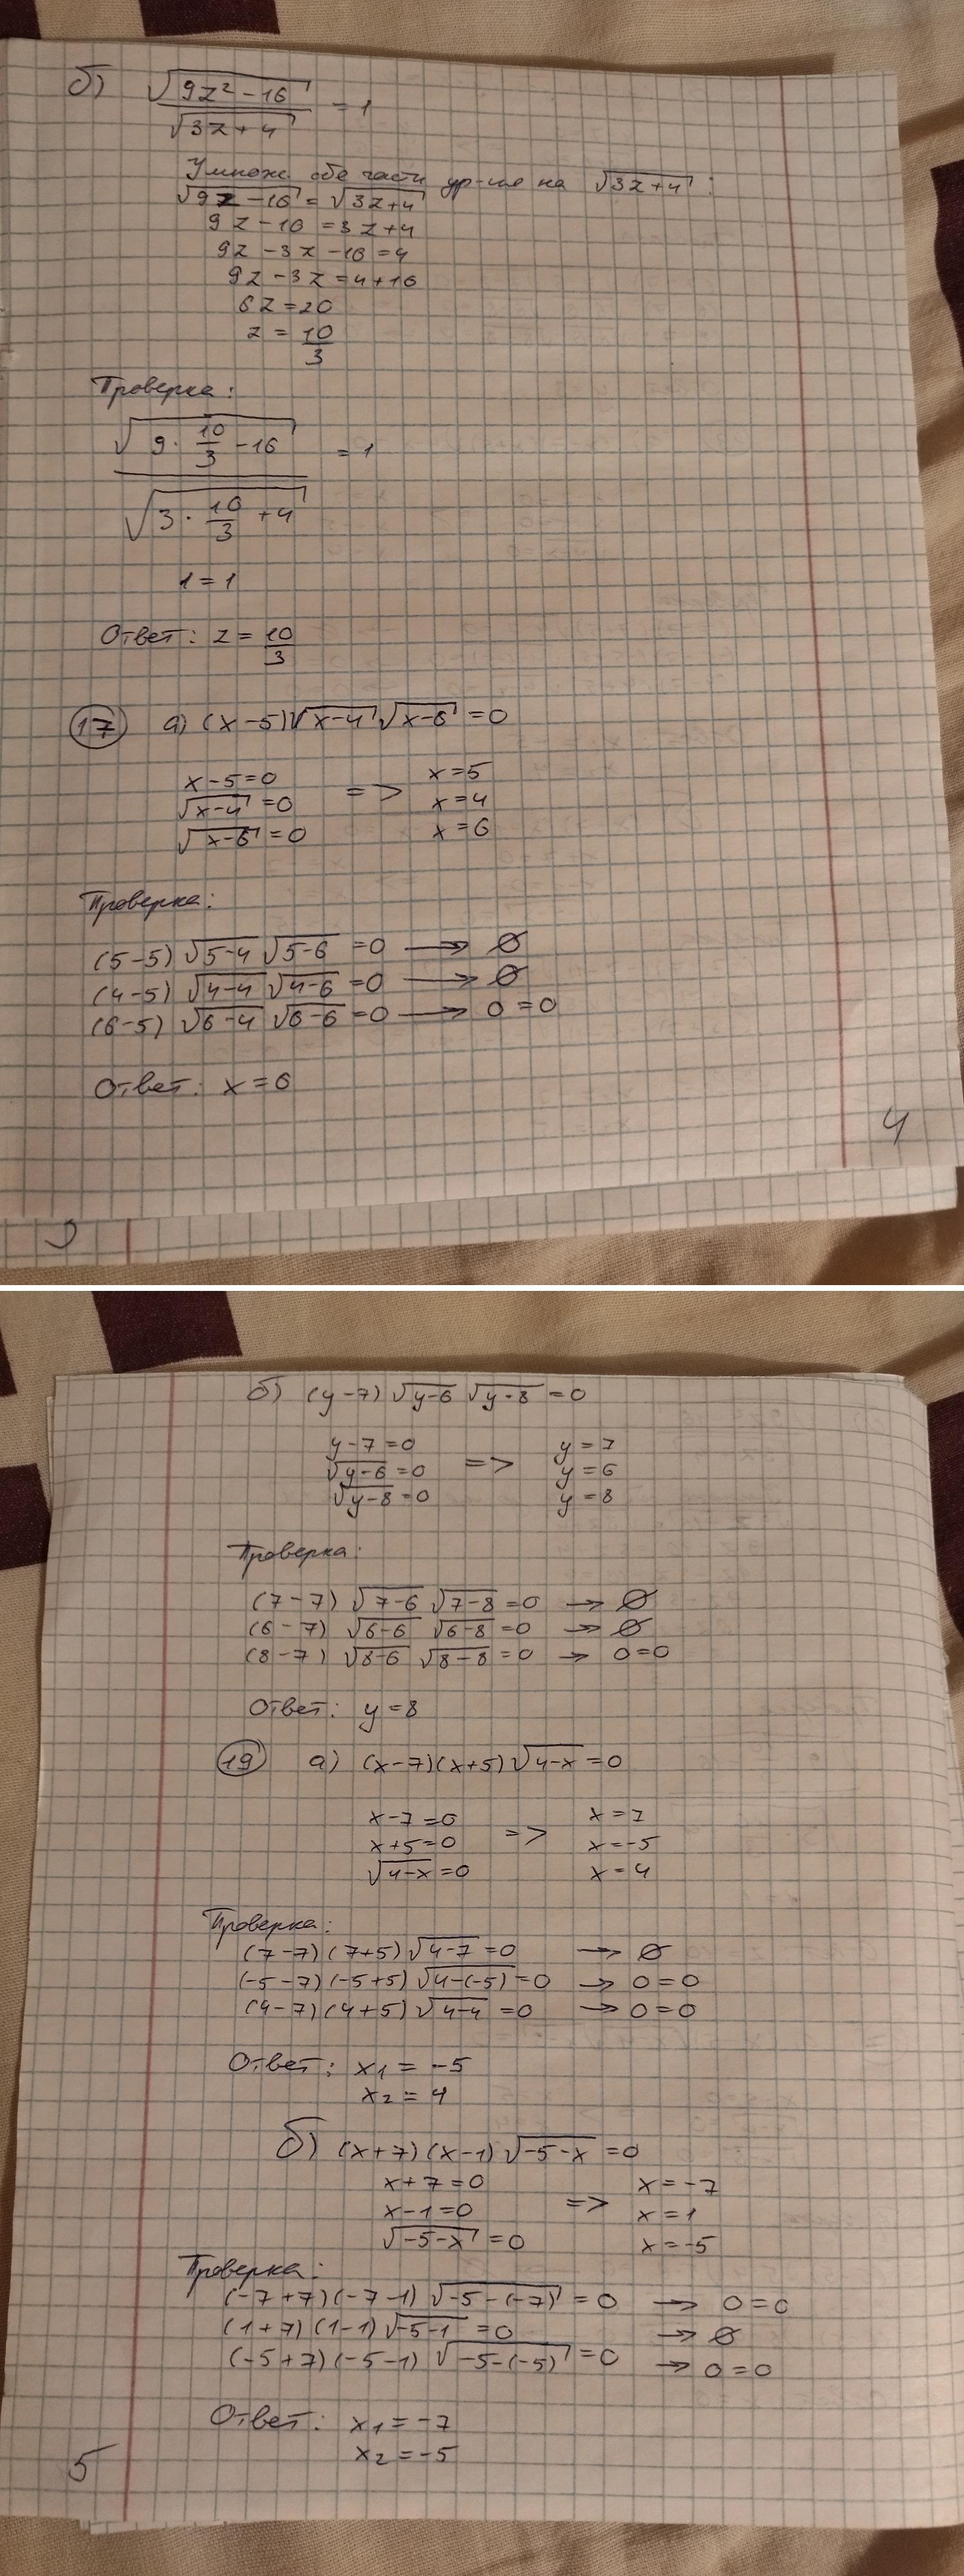 б) √(9z² - 16) / √(3z + 4) = 1
Умнож. обе части ур-ие на √(3z + 4) :
√(9z - 16) = √(3z + 4)
9z - 16 = 3z + 4
9z - 3z - 16 = 4
9z - 3z = 4 + 16
6z = 20
z = 10/3
Проверка:
√(9 · 10/3 - 16) / √(3 · 10/3 + 4) = 1
1 = 1
Ответ: z = 10/3
17 а) (x - 5)√(x - 4) √(x - 6) = 0
x - 5 = 0 => x = 5
√(x - 4) = 0 x = 4
√(x - 6) = 0 x = 6
Проверка:
(5 - 5) √(5 - 4) √(5 - 6) = 0 → ∅
(4 - 5) √(4 - 4) √(4 - 6) = 0 → ∅
(6 - 5) √(6 - 4) √(6 - 6) = 0 → 0 = 0
Ответ: x = 6
4
б) (y - 7) √(y - 6) √(y - 8) = 0
y - 7 = 0 => y = 7
√(y - 6) = 0 y = 6
√(y - 8) = 0 y = 8
Проверка:
(7 - 7) √(7 - 6) √(7 - 8) = 0 → ∅
(6 - 7) √(6 - 6) √(6 - 8) = 0 → ∅
(8 - 7) √(8 - 6) √(8 - 8) = 0 → 0 = 0
Ответ: y = 8
19 а) (x - 7)(x + 5) √(4 - x) = 0
x - 7 = 0 => x = 7
x + 5 = 0 x = -5
√(4 - x) = 0 x = 4
Проверка:
(7 - 7)(7 + 5) √(4 - 7) = 0 → ∅
(-5 - 7)(-5 + 5) √(4 - (-5)) = 0 → 0 = 0
(4 - 7)(4 + 5) √(4 - 4) = 0 → 0 = 0
Ответ: x₁ = -5
x₂ = 4
б) (x + 7)(x - 1) √(-5 - x) = 0
x + 7 = 0 => x = -7
x - 1 = 0 x = 1
√(-5 - x) = 0 x = -5
Проверка:
(-7 + 7)(-7 - 1) √(-5 - (-7)) = 0 → 0 = 0
(1 + 7)(1 - 1) √(-5 - 1) = 0 → ∅
(-5 + 7)(-5 - 1) √(-5 - (-5)) = 0 → 0 = 0
Ответ: x₁ = -7
x₂ = -5
5